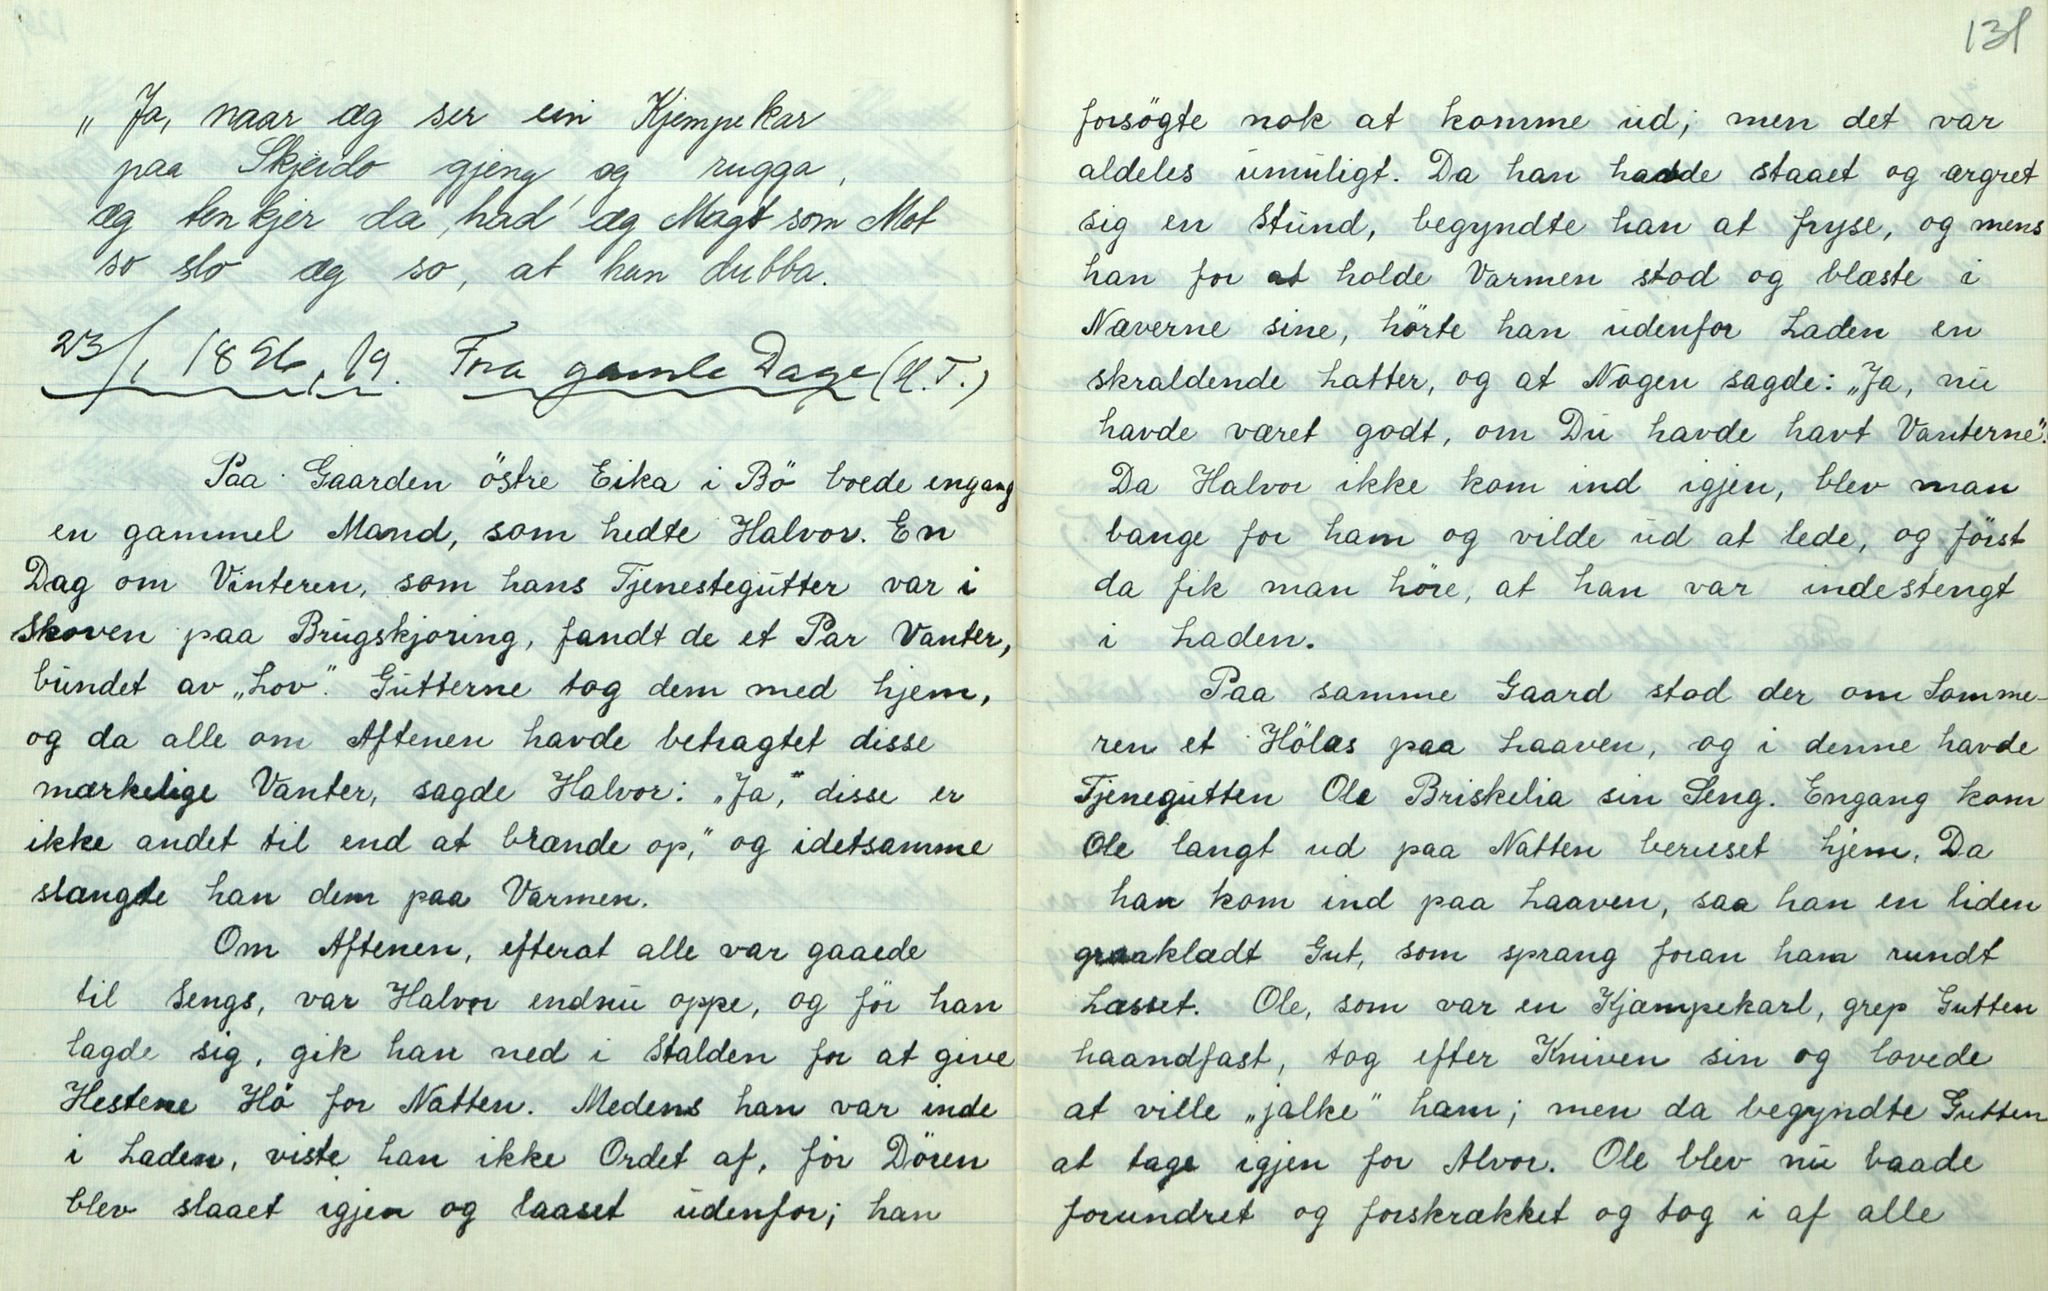 „Ja, naar æg ser ein Kjempekar
paa Skjeido gjeng og rugga,
æg tenkjer da, had' æg Magt som Mot
so slo æg so, at han dubba.
23/1 1896, 19. Fra gamle Dage (H. T.)
Paa Gaarden östre Eika i Bö boede engang
en gammel Mand, som hedte Halvor. En
Dag om Vinteren, som hans Tjenestegutter var i
Skoven paa Brugskjøring, fandt de et Par Vanter,
bundet av „Lov". Gutterne tog dem med hjem,
og da alle om Aftenen havde betragtet disse
mærkelige Vanter, sagde Halvor: „Ja," disse er
ikke andet til end at brænde op," og idetsamme
slængte han dem paa Varmen.
Om Aftenen, efterat alle var gaaede
til Sengs, var Halvor endnu oppe, og för han
lagde sig, gik han ned i Stalden for at give
Hestene Hö for Natten. Medens han var inde
i Laden, viste han ikke Ordet af, för Dören
blev slaaet igjen og laaset udenfor; han
131
forsögte nok at komme ud; men det var
aldeles umuligt. Da han havde staaet og ærgret
sig en Stund, begyndte han at fryse, og mens
han for at holde Varmen stod og blæste i
Næverne sine, hörte han udenfor Laden en
skraldende Latter, og at Nogen sagde: „Ja, nu
havde været godt, om Du havde havt Vanterne".
Da Halvor ikke kom ind igjen, blev man
bange for ham og vilde ud at lede, og först
da fik man höre, at han var indestengt
i Laden.
Paa samme Gaard stod der om Somme-
ren et Hölas paa Laaven, og i denne havde
Tjenegutten Ole Briskelia sin Seng. Engang kom
Ole langt ud paa Natten beruset hjem. Da
han kom ind paa Laaven, saa han en liden
graaklædt Gut, som sprang foran ham rundt
Læsset. Ole, som var en Kjæmpekarl, grep Gutten
haandfast, tog efter Kniven sin og lovede
at ville „jalke" ham; men da begyndte Gutten
at tage igjen for Alvor. Ole blev nu baade
forundret og forskrækket og tog i af alle